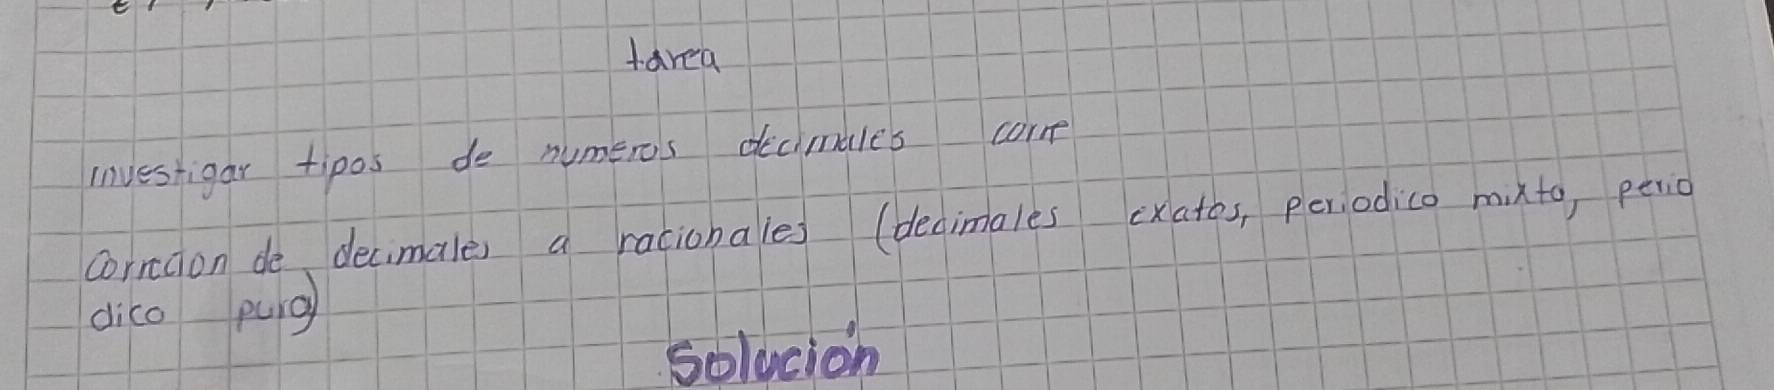 tarea
investigar tipos de numeros decimales
de decimales a racionales (decimales exatos, periodico mixto, perio
dico puro)
Solución